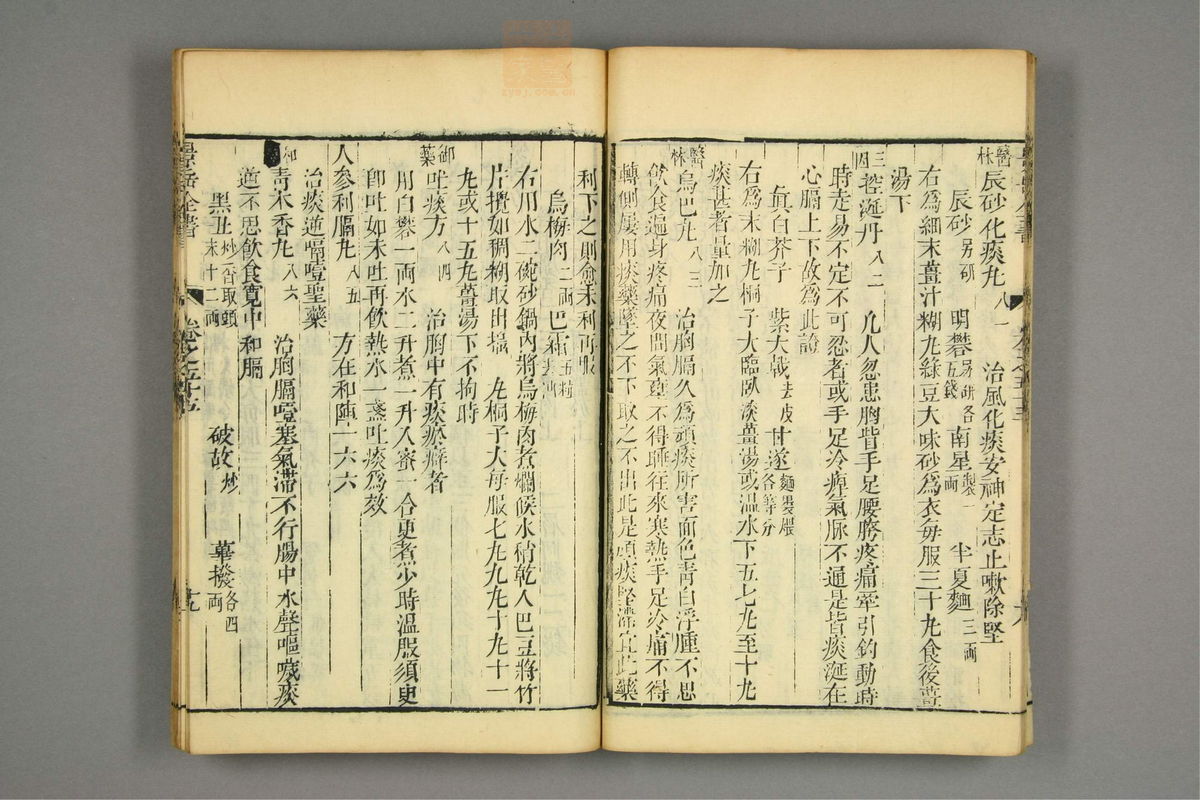 醫林辰砂化痰丸八一 治風化痰安神定志止嗽除堅
辰砂另研 明礬另研各五錢 南星製一兩 半夏麴三兩
右爲細末薑汁糊丸綠豆大味砂爲衣每服三十丸食後薑
湯下
三因控涎丹八二 凡人忽患胸背手足腰胯疼痛牽引釣動時
時走易不定不可忍者或手足冷痺氣脈不通是皆痰涎在
心膈上下故爲此證
真白芥子 紫大戟去皮 甘遂麵裹煨各等分
右爲末糊丸桐子大臨臥淡薑湯或温水下五七丸至十丸
痰甚者量加之
醫林烏巴丸八三 治胸膈久爲頑痰所害面色青白浮腫不思
飲食遍身疼痛夜間氣壅不得睡往來寒熱手足冷痛不得
轉側屢用痰藥墜之不下取之不出此是頑痰堅滯宜此藥
利下之則愈未利再服
烏梅肉二兩 巴豆五粒去油
右用水二碗砂鍋內將烏梅肉煮爛候水稍乾入巴豆將竹
片攪如稠糊取出擂 丸桐子大每服七丸九丸十丸十一
丸或十五丸薑湯下不拘時
御藥吐痰方八四 治胸中有痰瘀癖者
用白礬一兩水二升煮一升入蜜一合更煮少時温服須臾
卽吐如未吐再飲熱水一盞吐痰爲效
人參利膈丸八五 方在和陣一六六
治痰逆嗝噎聖藥
和青木香丸八六 治胸膈噎塞氣滯不行腸中水聲嘔噦痰
逆不思飲食寬中和膈
黑丑炒香取頭末十二兩 破故炒 蓽撥各四兩
景岳全書
卷之五十五
十九